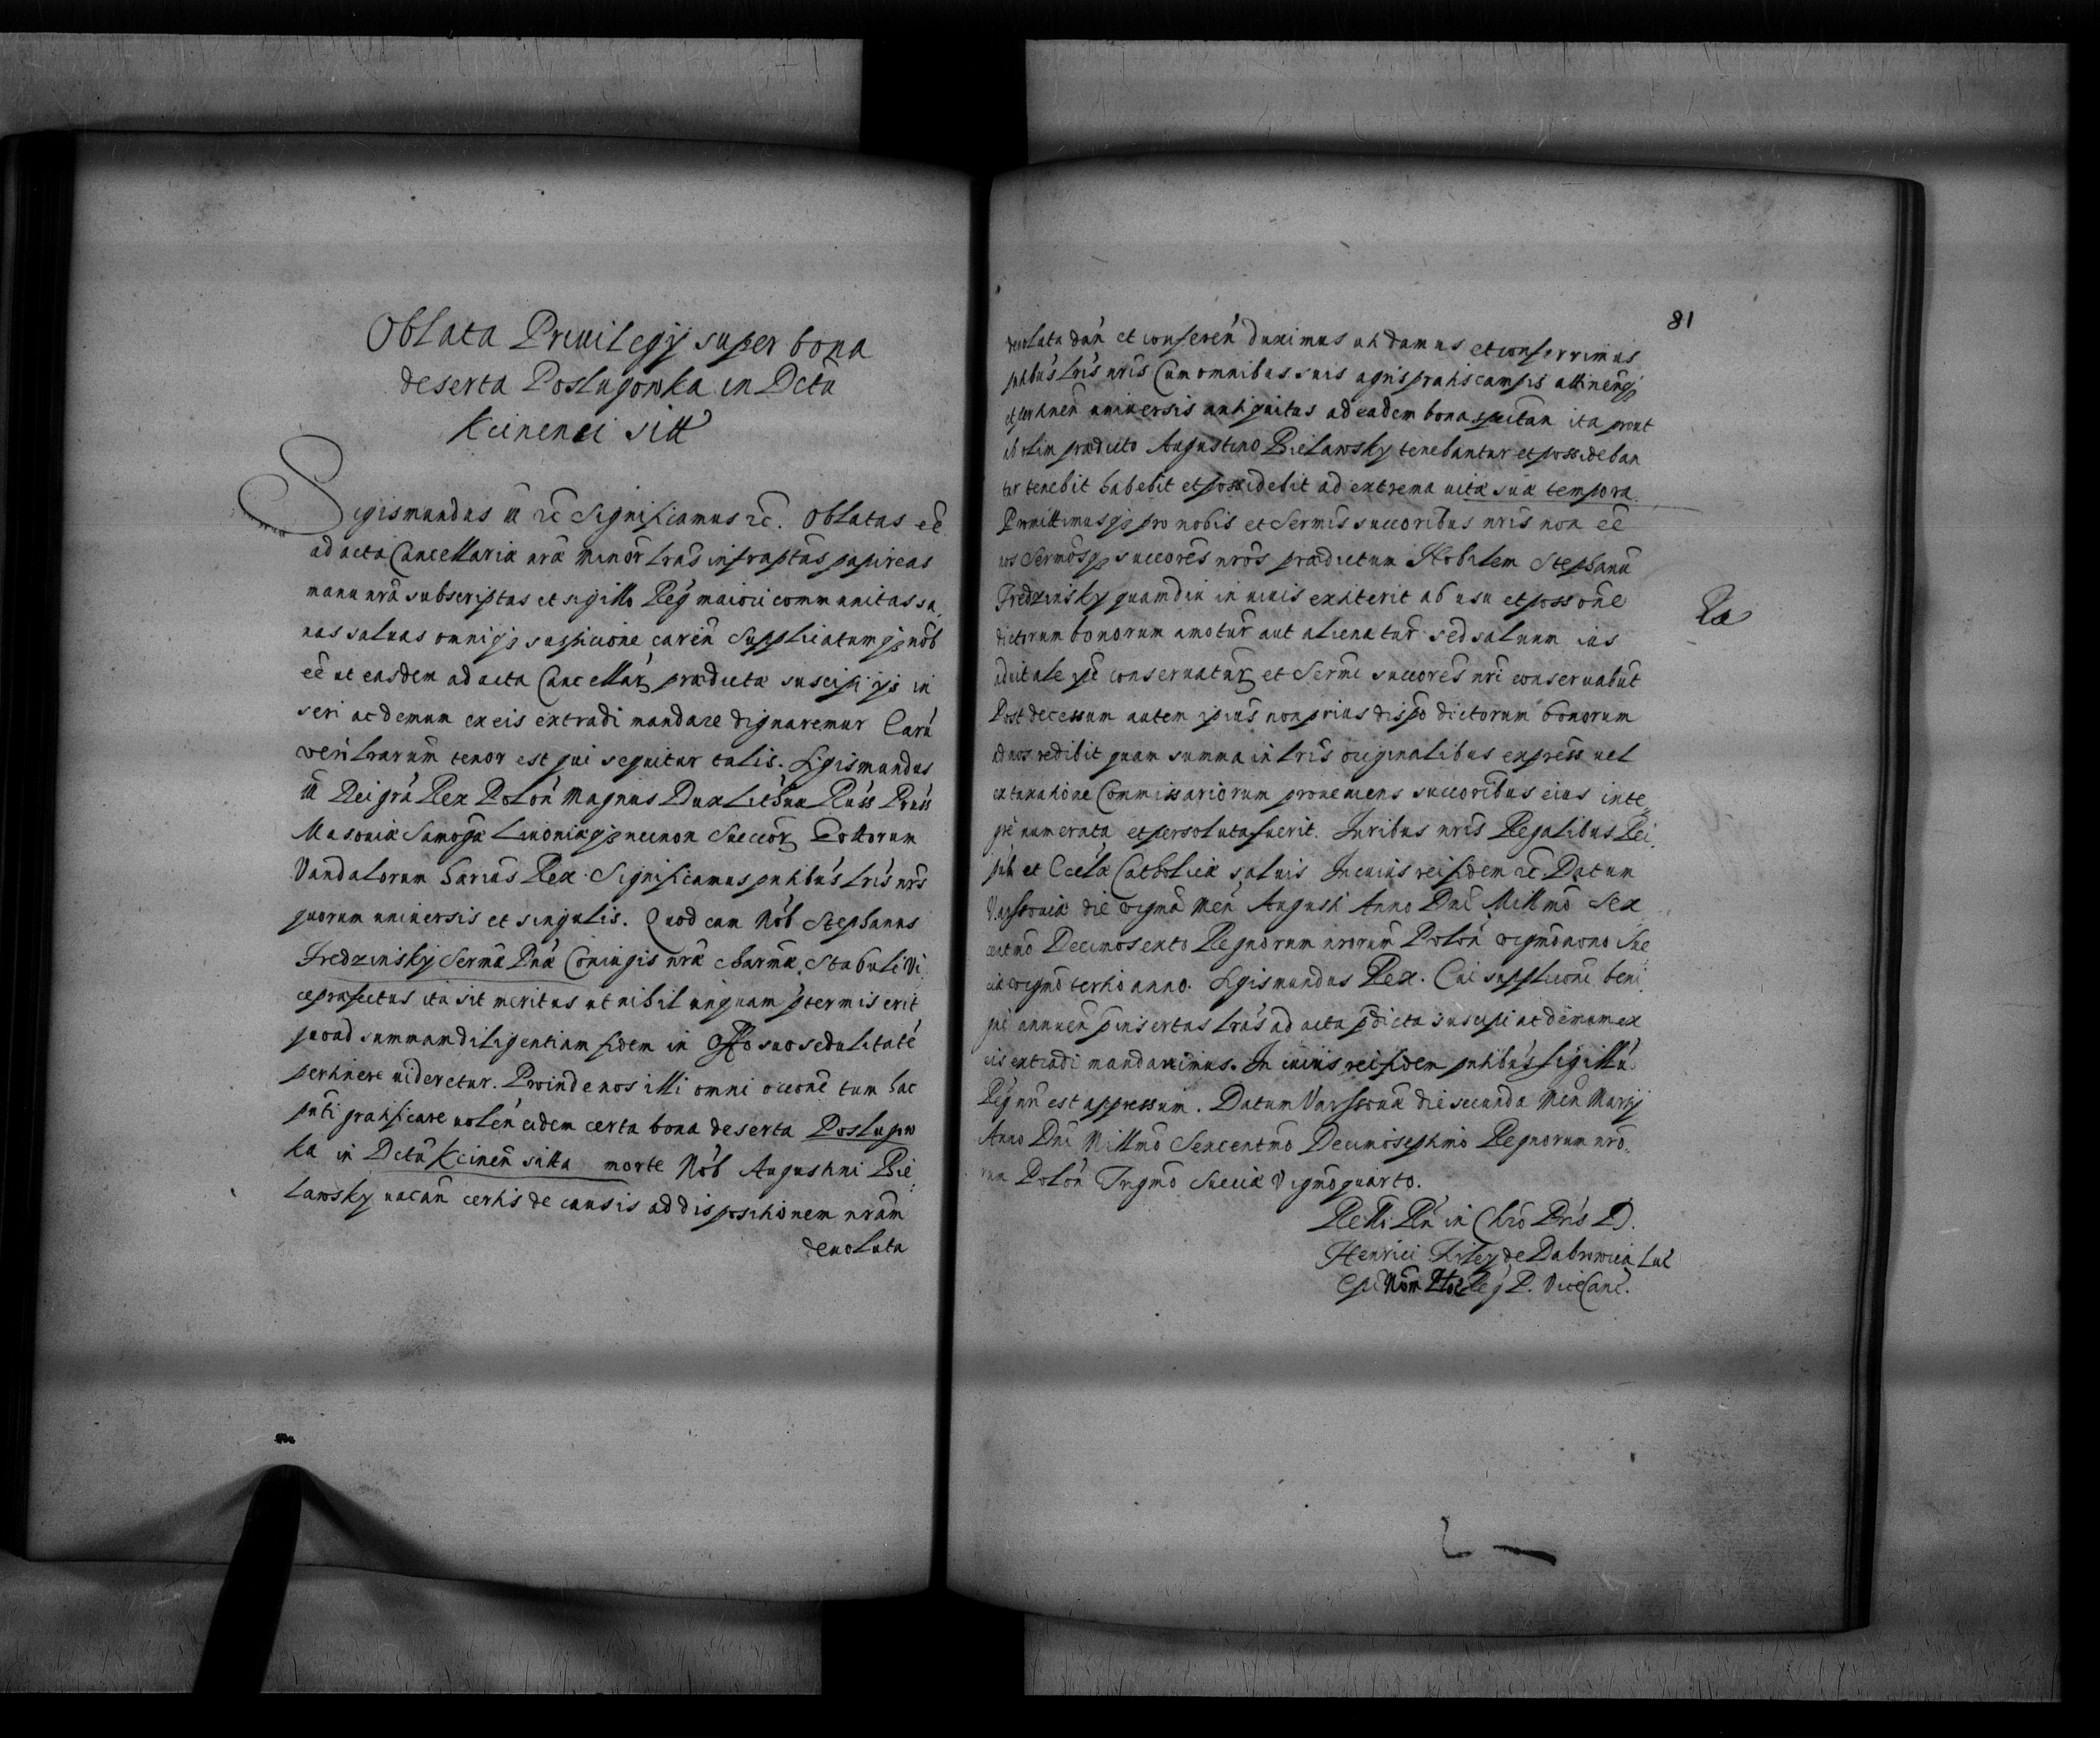 Oblata Priuilegij super bona
deserta Poslugowka in Dctũ
Kcinenci sitt
Sigismundus III rc Significamus rc. Oblatas eẽ
ad acta Cancellariæ nræ Minor lras infrascptas papireas
manu nrã subscriptas et sigillo Reg maiori communitas sa,
nas saluas omniq suspicione carẽn Supplicatumq nob
eẽ ut easdem ad acta Cancellar prædictæ suscipi ijs in
seri ac demum ex eis extradi mandare dignaremur Carũ
verñ lrarum tenor est qui sequitur talis. Sigismundus
III Dei gra Rex Polon Magnus Dux Lithuæ Russ Pruss
Masouiæ Samog Liuoniæq necnon Sueccor Gottorum
Vandalorum hærius Rex. Significamus pntibus lris nris
quorum uniuersis et singulis. Quod cum Nob Stephanus
Fredzinsky Sermæ Dnæ Coniugis nræ charmæ, Stabuli Vi,
cepræfectus ita sit meritus ut nihil unquam ptermiserit
quoad summam diligentiam fidem in Offo suo sedulitatẽ
pertinere uideretur. Proinde nos illi omni occone tum hac
pnti gratificare uolen eidem certa bona deserta Poslugow
ka in Dctũ Kcinen sitta morte Nob Augustini Bie,
lawsky uacan certis de causis ad dispositionem nram
deuoluta
81
deuoluta dan et conferen duximus uti damus et conferrimus
pntibus lris nris Cum omnibus suis agris pratis campis attinengs
et pertinen uniuersis antiquitus ad eadem bona spectan ita prout
ab olim prædicto Augustino Bielawsky tenebantur et possideban
tur tenebit habebit et possidebit ad extrema uitæ suæ tempora.
Promittimusq pro nobis et Sermis succoribus nris non eẽ
nos Sermosq succores nros prædictum Nobilem Stephanũ
Fredzinsky quamdiu in uiuis extiterit ab usu et possone
dictorum bonorum amotur aut alienatur sed saluum ius
aduitale ipẽ conseruatur et Sermi succores nri conseruabũt
Post decessum autem ipius non prius dispo dictorum bonorum
ad nos redibit quam summa in lris originalibus express uel
ex taxatione Commissariorum proueniens succoribus eius inte,
gre numerata et persoluta fuerit. Juribus nris Regalibus Rei,
pub et Eccla Catholicæ saluis In cuius rei fidem rc Datum
Varssouiæ die vigmã Men Augusti Anno Dni Millmo Sex
centmo Decimosexto Regnorum nrorum Polon vigmonono Sue
ciæ vigmo tertio anno. Sigismundus Rex. Cui supplicõni beni,
gne annuen pinsertas lras ad acta pdicta suscipi ac demum ex
eis extradi mandauimus. In cuius rei fidem pntibus sigillũ
Reg nrũ est appressum. Datum Varssouiæ die secunda Men Marty
Anno Dni Millmo Sexcentmo Decimoseptimo Regnorum nro,
rum Polon Trigmo Sueciæ Vigmoquarto.
Relti Rñ in Chro Pris D.
Henrici Firley de Dabrowica Luc
Epi Nom Reg P. ViceCanc.